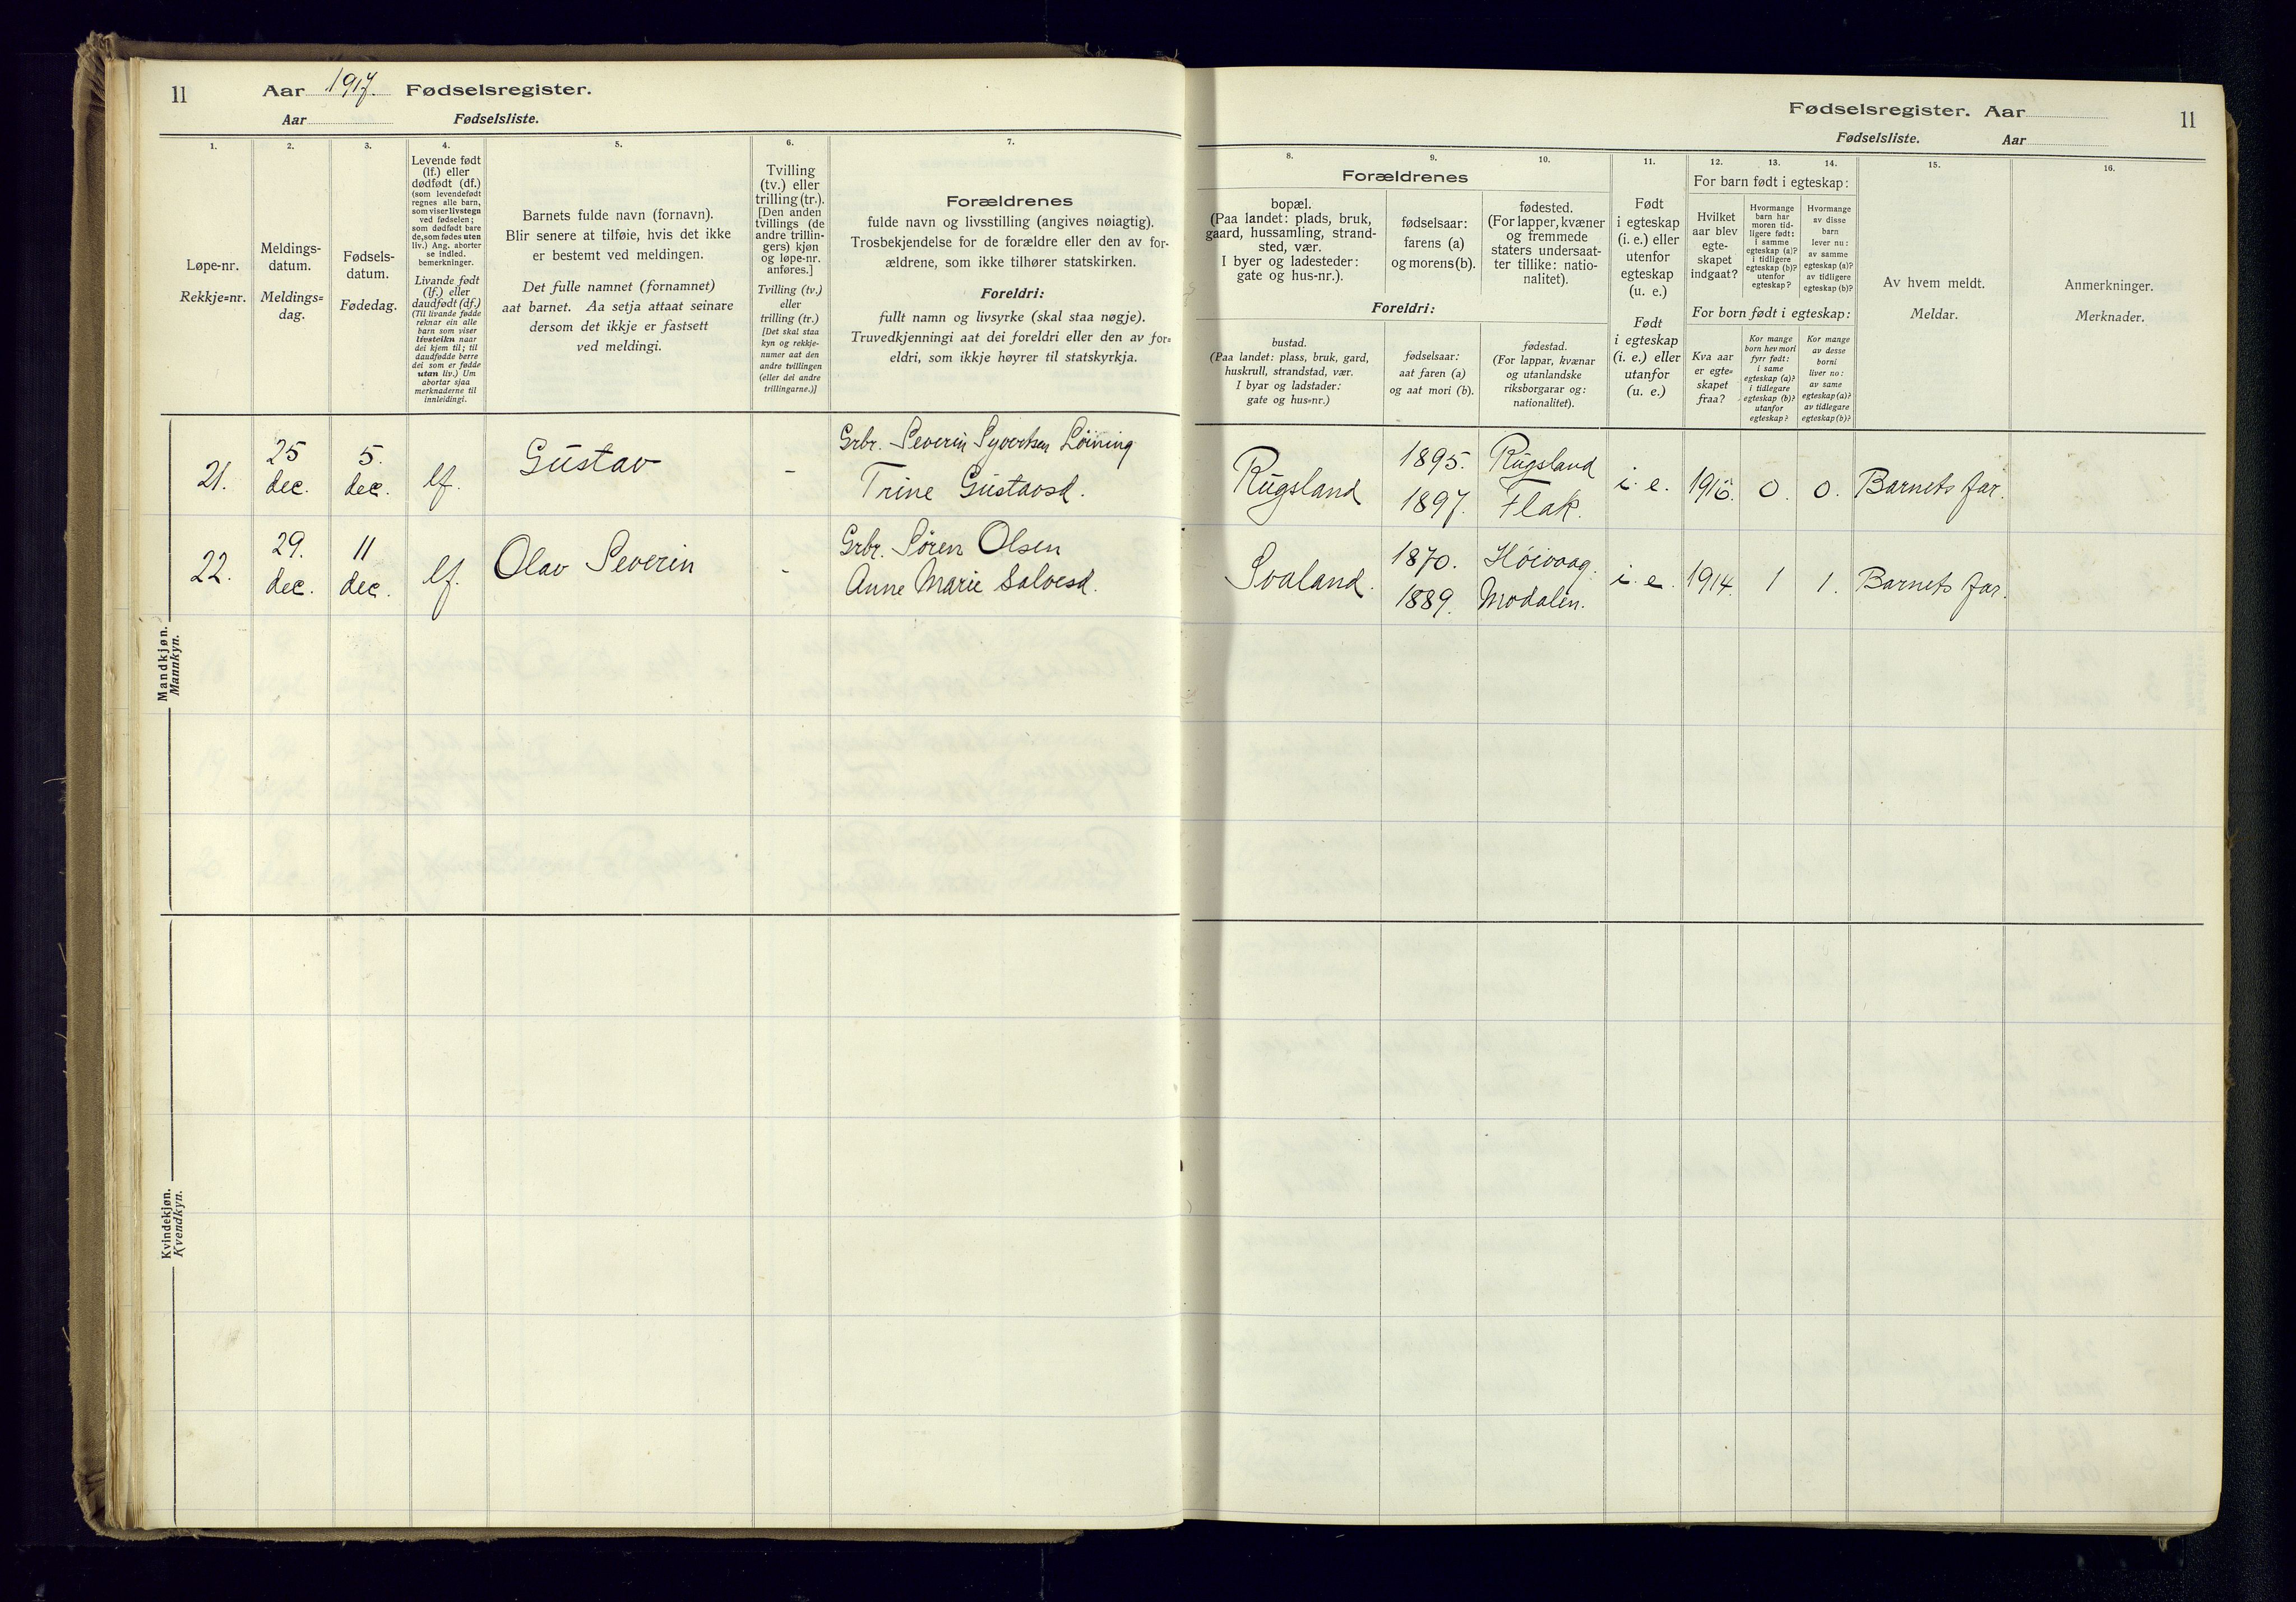 11
Aar 1917. Fødselsregister.
Aar Fødselsliste.
1.
Løpe-nr.
Rekkje=nr.
2.
Meldings-
datum.
Meldings=
dag.
3.
Fødsels-
datum.
Fødedag.
4.
Levende født
(lf.) eller
dødfødt (df.)
(som levendefødt
regnes alle barn,
som viser livstegn
ved fødselen;
som dødfødt bare
de, som fødes uten
liv.) Ang. aborter
se indled.
bemerkninger.
Livande født
(lf.) eller
daudfødt (df.)
(Til livande fødde
reknar ein alle
barn som viser
livsteikn naar
dei kjem til; til
daudfødde berre
dei som er fødde
utan liv.) Um
abortar sjaa
merknaderne til
innleidingi.
5.
Barnets fulde navn (fornavn).
Blir senere at tilføie, hvis det ikke
er bestemt ved meldingen.
Det fulle namnet (fornamnet)
aat barnet. Aa setja attaat seinare
dersom det ikkje er fastsett
ved meldingi.
6.
Tvilling
(tv.) eller
trilling (tr.).
[Den anden
tvillings (de
andre trillin-
gers) kjøn
og løpe-nr.
anføres.]
Tvilling (tv.)
eller
trilling (tr.)
[Det skal staa
kyn og rekkje-
numer aat den
andre tvillingen
(eller dei andre
trillingarne.)]
7.
Forældrenes
fulde navn og livsstilling (angives nøiagtig).
Trosbekjendelse for de forældre eller den av for-
ældrene, som ikke tilhører statskirken.
Foreldri:
fullt namn og livsyrke (skal staa nøgje).
Truvedkjenningi aat dei foreldri eller den av for=
eldri, som ikkje høyrer til statskyrkja.
Mandkjøn.
Mannkyn.
21.
25
dec.
5.
dec.
lf.
Gustav
-
Grbr. Severin Syvertsen Løining
Trine Gustavsd.
22.
29.
dec.
11
dec.
lf.
Olav Severin
-
Grbr. Søren Olsen
Anne Marie Salvesd.
Kvindekjøn.
Kvendkyn.
Fødselsregister. Aar
11
Fødselsliste. Aar
Forældrenes
8.
bopæl.
(Paa landet: plads, bruk,
gaard, hussamling, strand-
sted, vær.
I byer og ladesteder:
gate og hus-nr.).
9.
fødselsaar:
farens (a)
og morens (b).
10.
fødested.
(For lapper, kvæner
og fremmede
staters undersaat-
ter tillike: natio-
nalitet).
Foreldri:
bustad.
(Paa landet: plass, bruk, gard,
huskrull, strandstad, vær.
I byar og ladstader:
gate og hus=nr.)
fødselsaar:
aat faren (a)
og aat mori (b).
fødestad.
(For lappar, kvænar
og utanlandske
riksborgarar og:
nationalitet).
11.
Født
i egteskap
(i. e.) eller
utenfor
egteskap
(u. e.)
Født
i egteskap
(i. e.) eller
utanfor
(u. e.)
12.
13.
14.
For barn født i egteskap:
Hvilket
aar blev
egte-
skapet
indgaat?
Hvormange
barn har
moren tid-
ligere født:
i samme
egteskap (a)?
i tidligere
egteskap (b)?
utenfor
egteskap?
Hvormange
av disse
barn
lever nu:
av samme
egteskap (a)?
av tidligere
egteskap (b)?
For born født i egteskap:
Kva aar
er egte=
skapet
fraa?
Kor mange
born hev mori
fyrr født:
i same
egteskap (a)?
i tidlegare
egteskap (b)?
utanfor
egteskap?
Kor mange
av desse
borni
liver no:
av same
egteskap (a)?
av tidlegare
egteskap (b)?
15.
Av hvem meldt.
Meldar.
16.
Anmerkninger.
Merknader.
Rugsland
1895.
1897.
Rugsland
Flak.
i. e.
1916.
0.
0.
Barnets far.
Svaland.
1870.
1889.
Høivaag.
Modalen.
i. e.
1914.
1
1.
Barnets far.